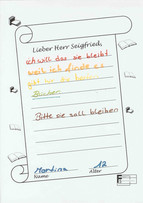 Lieber Herr Seigfried,
ich will das sie bleibt
weil ich finde es
gibt
Bitte sie soll bleiben
Martina 12
Name Alter